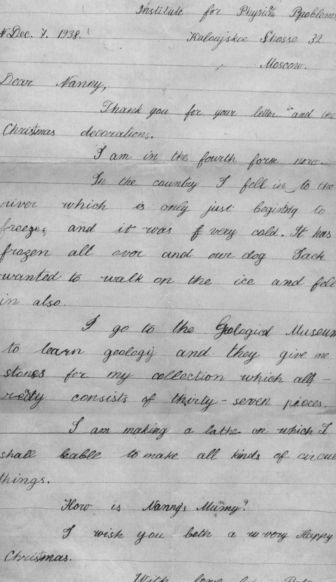 Institute for Physics Problems
Dec. 7. 1938.
Kaloujskoe Shosse 32
Moscow.
Dear Nanny,
Thank you for your letter and the
Christmas decorations.
I am in the fourth form now.
In the country I fell in to the
river which is only just begining to
freeze, and it was very cold. It has
frozen all over and our dog Jack
wanted to walk on the ice and fell
in also.
I go to the Geological Museum
to learn geologiy and they give me
stones for my collection which all-
redy consists of thirty-seven pieces.
I am making a latte on which I
shall bable to make all kinds of circul
things.
How is Nanny's Mumy?
I wish you both a very Happy
Christmas.
With love